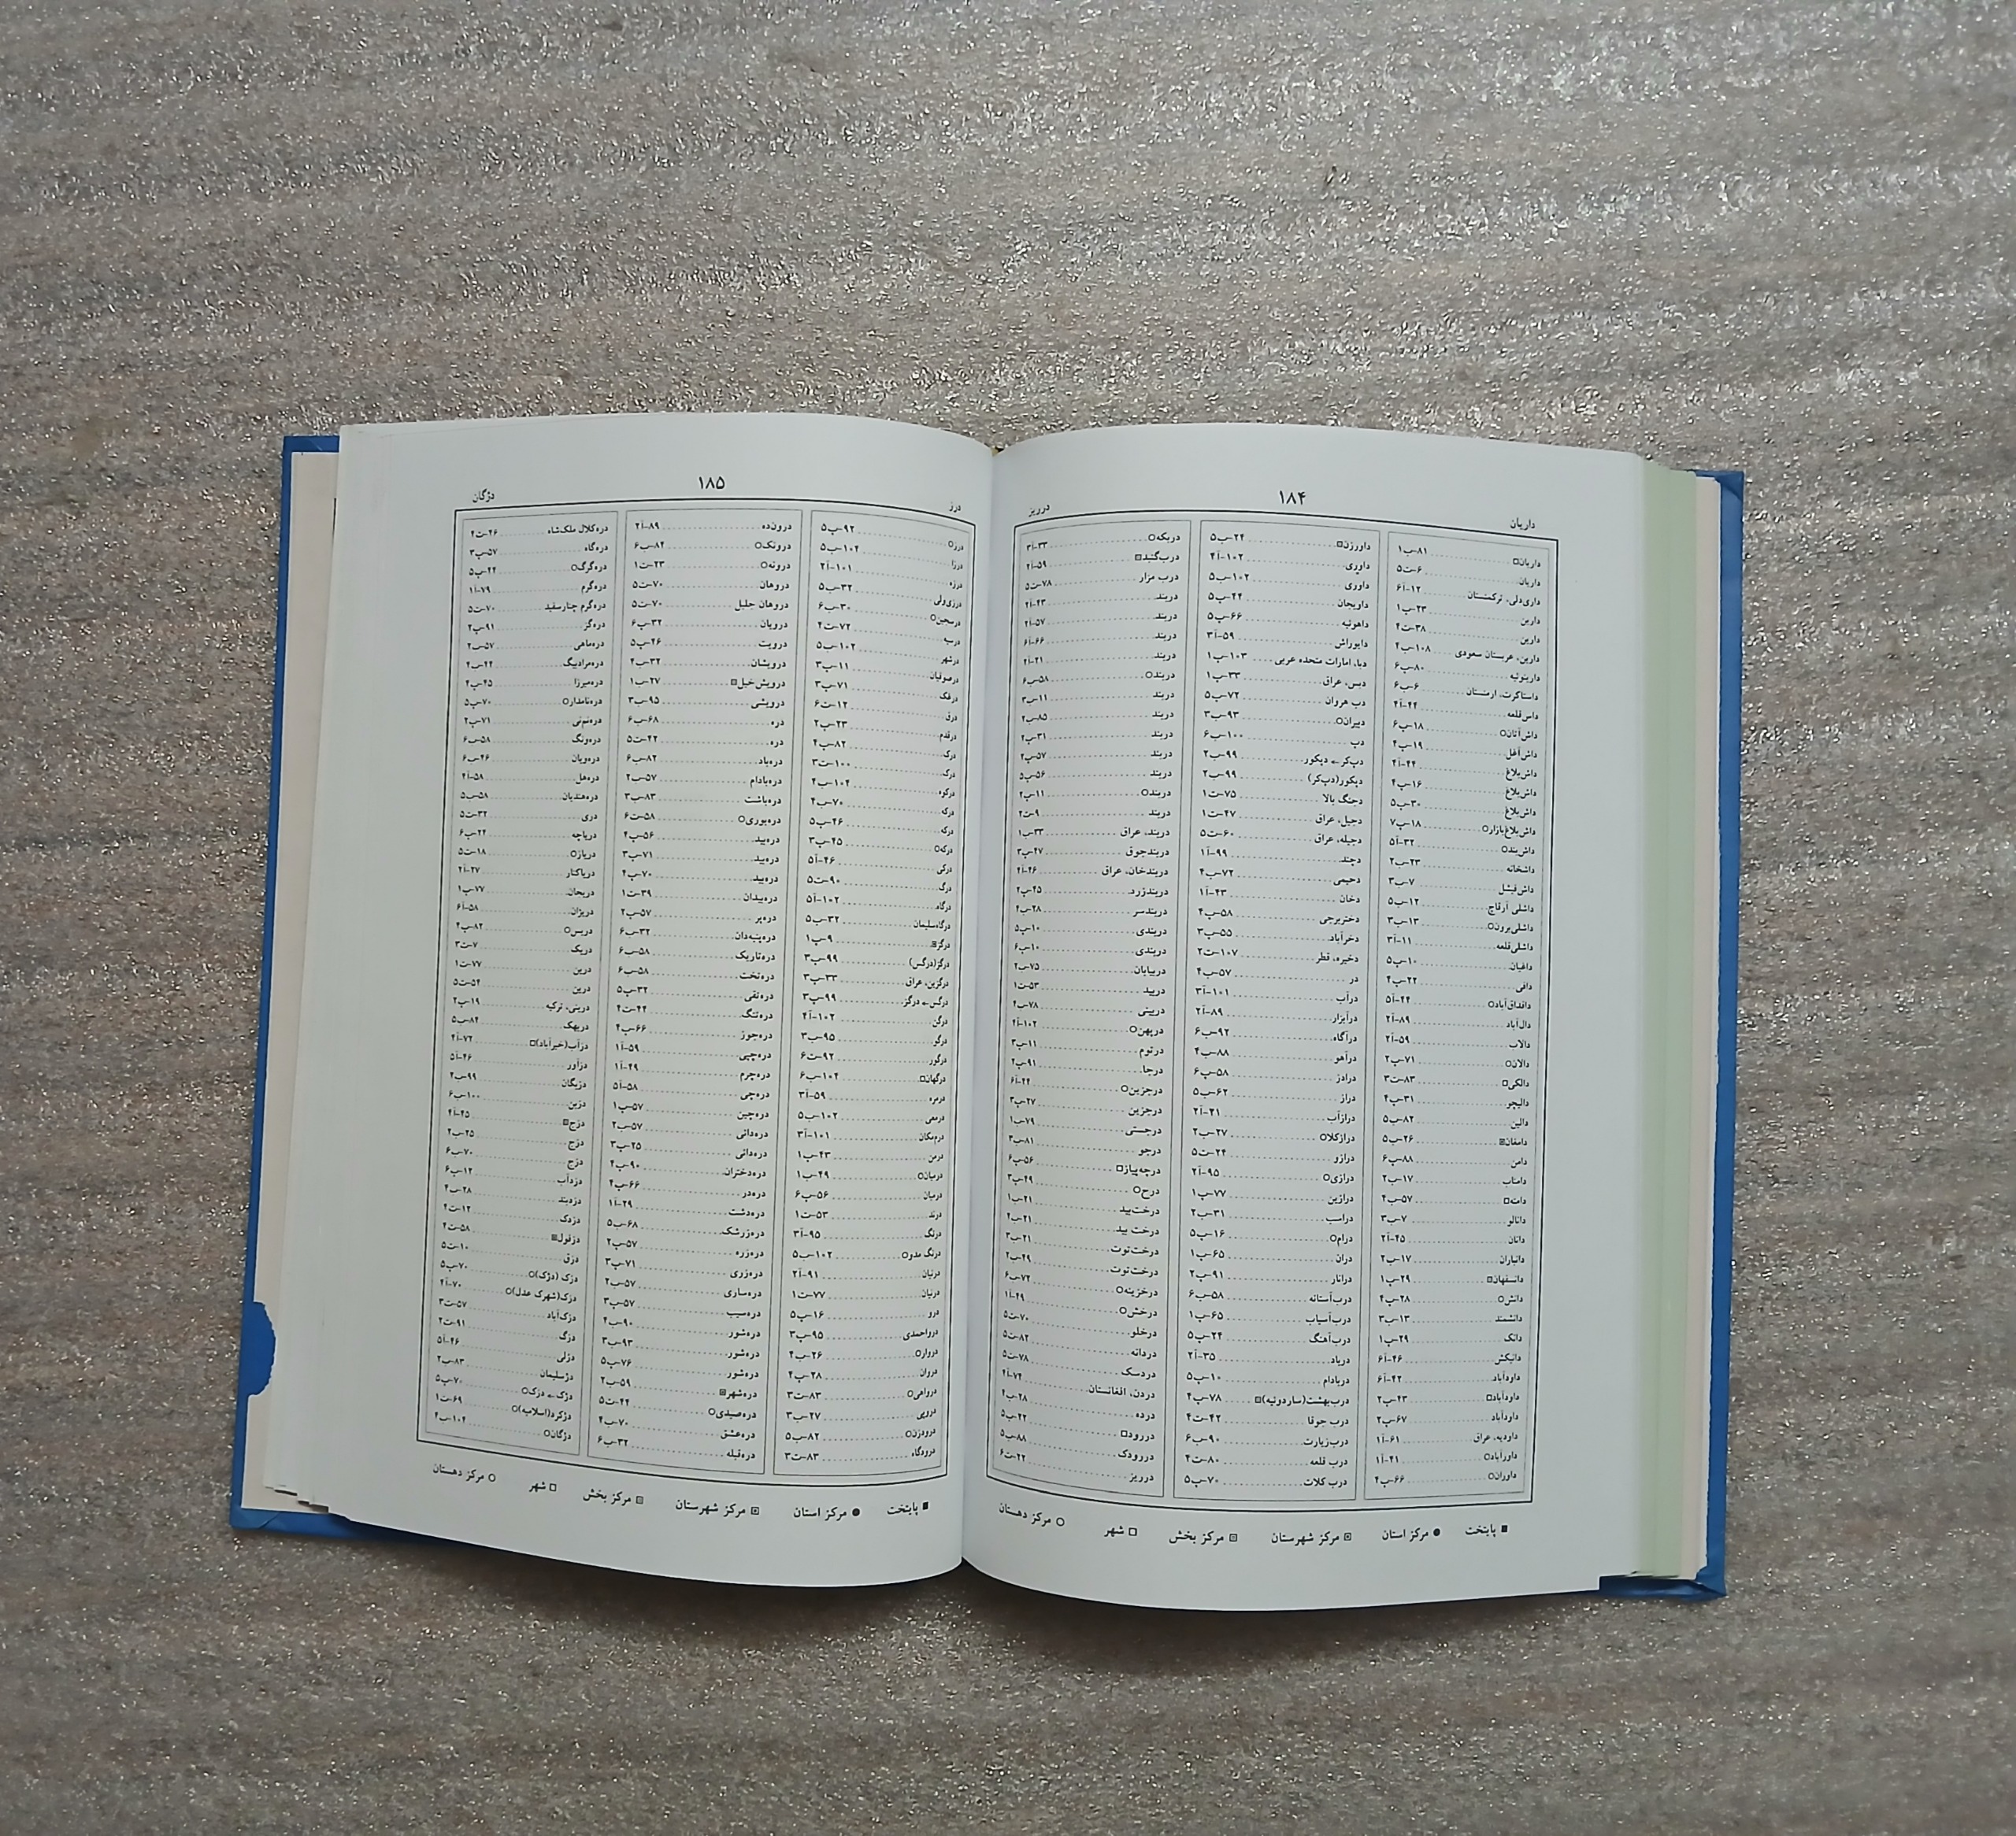 ۱۸۴
داریان
درریز
داریان□ ۸۱-ب۱
داریان ۶-ت۵
داری‌دلی، ترکمنستان ۱۲-آ۶
دارین ۲۳-ب۱
دارین ۳۸-ت۴
دارین، عربستان سعودی ۱۰۸-ب۴
دارینوئیه ۸۰-ب۶
داستاکرت، ارمنستان ۶-ب۶
داس‌قلعه ۴۴-آ۴
داش‌آتان○ ۱۸-پ۶
داش‌آغل ۱۹-پ۴
داش‌بلاغ ۴۴-آ۴
داش‌بلاغ ۱۶-پ۴
داش‌بلاغ ۳۰-پ۵
داش‌بلاغ‌بازار○ ۱۸-پ۷
داش‌بند○ ۳۲-آ۵
داشخانه ۲۳-ب۲
داش‌قیشل ۷-ب۳
داشلی آرقاچ ۱۲-پ۵
داشلی‌برون○ ۱۳-ب۳
داشلی‌قلعه ۱۱-آ۳
داغیان ۱۰-پ۵
دافی ۲۲-پ۴
دافداق‌آباد○ ۴۴-آ۵
دال‌آباد ۸۹-آ۲
دالاب ۵۹-آ۲
دالان○ ۷۱-پ۲
دالکی□ ۸۳-ت۳
دالیچو ۳۱-پ۴
دالین ۸۲-پ۵
دامغان▣ ۲۶-پ۵
دامن ۸۸-پ۶
دامناب ۱۷-ب۲
دامت□ ۵۷-ب۴
دانالو ۷-ب۳
دانان ۴۵-آ۲
دانیاران ۱۷-ب۲
دانسفهان▣ ۲۹-پ۱
دانش○ ۲۸-پ۴
دانشمند ۱۳-ب۳
دانک ۲۹-پ۱
دانیکش ۴۶-آ۶
داودآباد ۴۲-آ۶
داودآباد□ ۴۳-پ۲
داودآباد ۶۷-پ۲
داودیه، عراق ۶۱-آ۱
داورآباد○ ۴۱-آ۱
داوران○ ۶۶-پ۴
داورزن▣ ۲۴-پ۵
داوری ۱۰۲-آ۴
داوری ۱۰۲-پ۵
داویجان ۴۴-پ۵
داهوئیه ۶۶-پ۵
دایوراش ۵۹-آ۳
دبا، امارات متحده عربی ۱۰۳-پ۱
دبس، عراق ۳۳-پ۱
دب هروان ۷۲-پ۵
دبیران○ ۹۳-پ۳
دپ ۱۰۰-پ۶
دپ‌کر ← دپکور ۹۹-ب۲
دپکور(دپ‌کر) ۹۹-ب۲
دجنگ بالا ۷۵-ت۱
دجیل، عراق ۴۷-ت۱
دجیله، عراق ۶۰-ت۵
دچند ۹۹-آ۱
دحیمی ۷۲-ب۴
دخان ۴۳-آ۱
دختربرجی ۵۸-ب۴
دخرآباد ۵۵-پ۳
دخیره، قطر ۱۰۷-ت۲
در ۵۷-پ۴
درآب ۱۰۱-آ۳
درآبزار ۸۹-آ۲
درآگاه ۹۲-ب۶
درآهو ۸۸-پ۴
درادز ۵۸-پ۶
دراز ۶۲-پ۵
درازآب ۲۱-آ۲
درازکلا○ ۲۷-پ۲
درازو ۲۴-ت۵
درازی○ ۹۵-آ۲
درازین ۷۷-پ۱
دراسب ۳۱-ب۲
درام○ ۱۶-پ۵
دران ۶۵-پ۱
درانار ۹۱-پ۲
درب‌آستانه ۵۸-ب۶
درب‌آسیاب ۶۵-پ۱
درب‌آهنگ ۲۴-پ۵
درباد ۳۵-آ۲
دربادام ۱۰-پ۵
درب‌بهشت(ساردوئیه)▣ ۷۸-پ۴
درب جوفا ۴۲-ت۴
درب‌زیارت ۹۰-ب۶
درب قلعه ۸۰-ت۴
درب کلات ۷۰-ب۵
دربکه○ ۳۳-آ۳
درب‌گنبد▣ ۵۹-آ۲
درب مزار ۷۸-ت۵
دربند ۴۳-آ۲
دربند ۵۷-آ۲
دربند ۶۶-آ۶
دربند ۲۱-آ۲
دربند○ ۵۸-ب۶
دربند ۱۱-ب۳
دربند ۸۵-ب۲
دربند ۳۱-ب۲
دربند ۵۷-پ۲
دربند ۵۶-پ۵
دربند○ ۱۱-پ۲
دربند ۹-ت۲
دربند، عراق ۳۳-پ۱
دربندجوق ۴۷-پ۳
دربندخان، عراق ۴۶-آ۴
دربندزرد ۴۵-پ۲
دربندسر ۲۸-ب۴
دربندی ۱۰-پ۵
دربندی ۱۰-پ۶
دربیابان ۷۵-پ۲
دربید ۵۳-ت۱
دربیتی ۷۸-ب۴
درپهن○ ۱۰۲-آ۴
درتوم ۱۱-پ۳
درجا ۹۱-پ۲
درجزین○ ۴۴-آ۶
درجزین ۲۷-پ۳
درجستی ۷۹-پ۱
درجو ۸۱-پ۳
درچه‌پیاز□ ۵۶-پ۶
درح○ ۴۹-پ۳
درخت‌بید ۲۱-ب۱
درخت بید ۲۱-ب۴
درخت‌توت ۲۱-ب۳
درخت‌توت ۴۹-پ۲
درخزینه○ ۷۲-ب۶
درخش○ ۴۹-آ۱
درخلو ۷۰-ت۵
دردانه ۸۲-ت۵
دردسک ۷۸-ت۵
دردن، افغانستان ۷۴-آ۴
درده ۲۸-ب۴
دررود□ ۲۲-پ۵
دررودک ۸۸-ب۵
درریز ۲۲-ت۶
■ پایتخت ● مرکز استان ▣ مرکز شهرستان ▣ مرکز بخش □ شهر ○ مرکز دهستان
۱۸۵
درز
دژگان
درز○ ۹۲-پ۵
درزا ۱۰۴-پ۵
درزه ۱۰۱-آ۲
درزی‌ولی ۳۲-ب۵
درسجین○ ۳۰-ب۶
درسیه ۷۲-ت۴
درشهر ۱۰۲-ب۵
درصوفیان ۱۱-پ۳
درفک ۷۱-پ۳
درق ۱۲-ت۶
درقدم ۲۳-پ۲
درک ۸۲-پ۴
درک ۱۰۰-ت۳
درکوه ۱۰۴-ب۴
درکه ۷۰-ب۴
درکه ۴۶-پ۵
درکه○ ۴۵-پ۳
درکی ۴۶-آ۵
درگ ۹۰-ت۵
درگاه ۱۰۲-آ۵
درگاه‌سلیمان ۳۲-ب۵
درگز▣ ۹-پ۱
درگز(درگس) ۹۹-پ۳
درگزین، عراق ۳۳-پ۳
درگس ← درگز ۹۹-پ۳
درگن ۱۰۲-آ۲
درگو ۹۵-ب۳
درگور ۹۲-ت۶
درگهان□ ۱۰۴-ب۶
درمره ۵۹-آ۳
درمعی ۱۰۲-ب۵
درمکان ۱۰۱-آ۳
درمن ۴۳-پ۱
درمیان○ ۴۹-ب۱
درمیان ۵۶-پ۶
درند ۵۳-ت۱
درنگ ۹۵-آ۳
درنگ مدو○ ۱۰۲-ب۵
درنیان ۹۱-آ۲
درنیان ۷۷-ت۱
درو ۱۶-پ۵
درواحمدی ۹۵-پ۳
دروار○ ۲۶-پ۴
دروران ۲۸-پ۴
درواهی○ ۸۳-ت۳
درویی ۲۷-پ۳
درودزن○ ۸۲-پ۵
درودگاه ۸۳-ت۳
درون‌ده ۸۹-آ۲
درونک○ ۸۴-ب۶
درونه○ ۲۳-ت۱
دروهان ۷۰-ت۵
دروهان جلیل ۷۰-ت۵
درویان ۳۲-پ۶
درویت ۴۶-پ۵
درویشان ۳۲-ب۴
درویش‌خیل▣ ۲۷-ب۱
درویشی ۹۵-ب۳
دره ۶۸-ب۶
دره ۴۲-ت۵
دره‌باد ۸۲-پ۶
دره‌بادام ۵۷-ب۲
دره‌باشت ۸۳-ب۳
دره‌بوری○ ۵۸-ت۶
دره‌بید ۵۶-پ۴
دره‌بید ۷۱-پ۳
دره‌بید ۷۰-پ۴
دره‌بیدان ۳۹-ت۱
دره‌پر ۵۷-ب۲
دره‌پنبه‌دان ۳۲-ب۶
دره‌تاریک ۵۸-ب۶
دره‌تخت ۵۸-ب۶
دره‌تفی ۳۲-پ۵
دره‌تنگ ۴۴-ت۴
دره‌جوز ۶۶-پ۴
دره‌چپی ۵۹-آ۱
دره‌چرم ۴۹-آ۱
دره‌چی ۵۸-آ۵
دره‌چین ۵۷-پ۱
دره‌دانی ۵۷-ب۲
دره‌دانی ۲۵-پ۳
دره‌دختران ۹۰-ب۴
دره‌در ۶۶-پ۴
دره‌دشت ۲۹-آ۱
دره‌زرشک ۶۸-ب۵
دره‌زره ۵۷-پ۲
دره‌زری ۷۱-پ۳
دره‌ساری ۵۷-ب۲
دره‌سیب ۵۷-پ۳
دره‌شور ۹۰-ب۴
دره‌شور ۹۳-ب۳
دره‌شور ۷۶-پ۵
دره‌شهر▣ ۵۹-ب۲
دره‌صیدی○ ۴۴-ت۵
دره‌عشق ۷۰-ب۴
دره‌قبله ۳۲-ب۶
دره‌کلال ملک‌شاه ۴۶-ت۴
دره‌گاه ۵۷-پ۳
دره‌گرگ○ ۴۴-پ۵
دره‌گرم ۷۹-آ۱
دره‌گرم چنارسفید ۷۰-ت۵
دره‌گز ۹۱-پ۲
دره‌ماهی ۵۷-ب۲
دره‌مرادبیگ ۴۴-ب۴
دره‌میرزا ۴۵-پ۲
دره‌نامدار○ ۷۰-پ۵
دره‌نمنی ۷۱-پ۲
دره‌ونگ ۵۸-ب۶
دره‌ویان ۴۶-ب۶
دره‌هل ۵۸-آ۴
دره‌هندیان ۵۸-ب۵
دری ۳۲-ت۵
دریاچه ۲۴-پ۶
درباز○ ۱۸-ت۵
دریاکنار ۲۷-آ۲
دریجان ۷۷-پ۱
دریژان ۵۸-آ۶
دریس○ ۸۲-پ۴
دریک ۷-ت۳
درین ۷۷-ت۱
درین ۵۴-ت۵
درینی، ترکیه ۱۹-پ۲
دریهک ۸۴-ب۵
درآب(خیرآباد)□ ۷۲-آ۴
دزآور ۴۶-آ۵
دزبگان ۹۹-ب۲
دزبن ۱۰۰-ب۶
دزج▣ ۴۵-آ۴
دزج ۲۵-ب۴
دزج ۷۰-ب۶
دزدآب ۱۲-پ۶
دزدبند ۲۸-ب۴
دزدک ۱۲-ت۴
دزفول▣ ۵۸-ت۴
دزق ۱۰-ت۵
دزک (دژک)○ ۷۰-پ۵
دزک(شهرک عدل)○ ۷۰-آ۴
دزک‌آباد ۵۷-ت۳
دزگ ۹۱-ت۲
دزلی ۴۶-آ۵
دژسلیمان ۸۳-ب۲
دژک ← دزک○ ۷۰-پ۵
دژکرد(اسلامیه)○ ۶۹-ت۱
دژگان○ ۱۰۴-ب۴
■ پایتخت ● مرکز استان ▣ مرکز شهرستان ▣ مرکز بخش □ شهر ○ مرکز دهستان